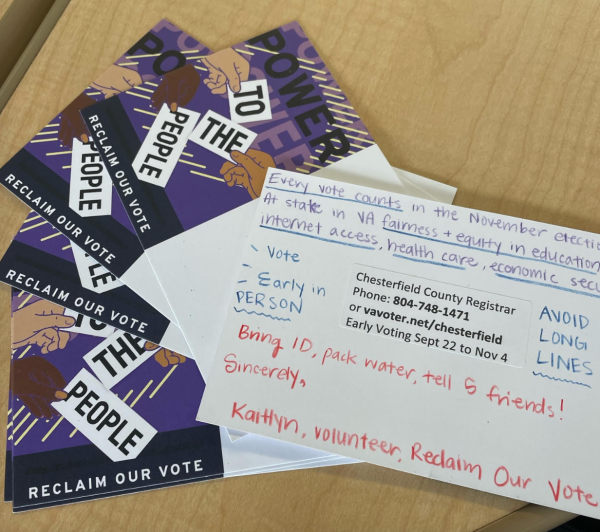 POWER
TO
THE
PEOPLE
RECLAIM OUR VOTE
PEOPLE
RECLAIM OUR VOTE
PEOPLE
RECLAIM OUR VOTE
THE
PEOPLE
RECLAIM OUR VOTE
Every vote counts in the November election
At state in VA fairness + equity in education
internet access, health care, economic secu
- Vote
- Early in
PERSON
Chesterfield County Registrar
Phone: 804-748-1471
or vavoter.net/chesterfield
Early Voting Sept 22 to Nov 4
AVOID
LONG
LINES
Bring ID, pack water, tell 5 friends!
Sincerely,
Kaitlyn, volunteer, Reclaim Our Vote